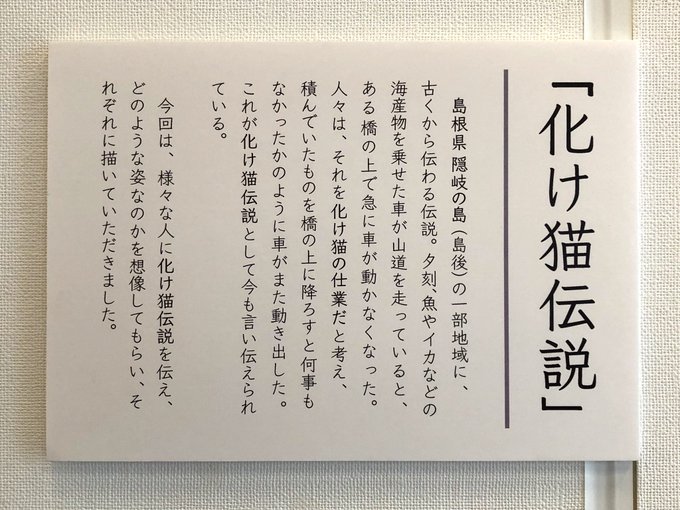 「化け猫伝説」
島根県 隠岐の島(島後)の一部地域に、
古くから伝わる伝説。夕刻、魚やイカなどの
海産物を乗せた車が山道を走っていると、
ある橋の上で急に車が動かなくなった。
人々は、それを化け猫の仕業だと考え、
積んでいたものを橋の上に降ろすと何事も
なかったかのように車がまた動き出した。
これが化け猫伝説として今も言い伝えられ
ている。
今回は、様々な人に化け猫伝説を伝え、
どのような姿なのかを想像してもらい、そ
れぞれに描いていただきました。